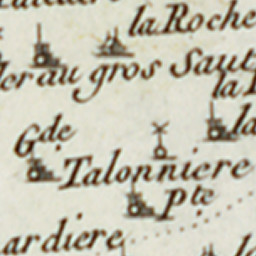 la Roche
ler au gros Saut
la
G.de
la
Talonniere
p.te
ardiere